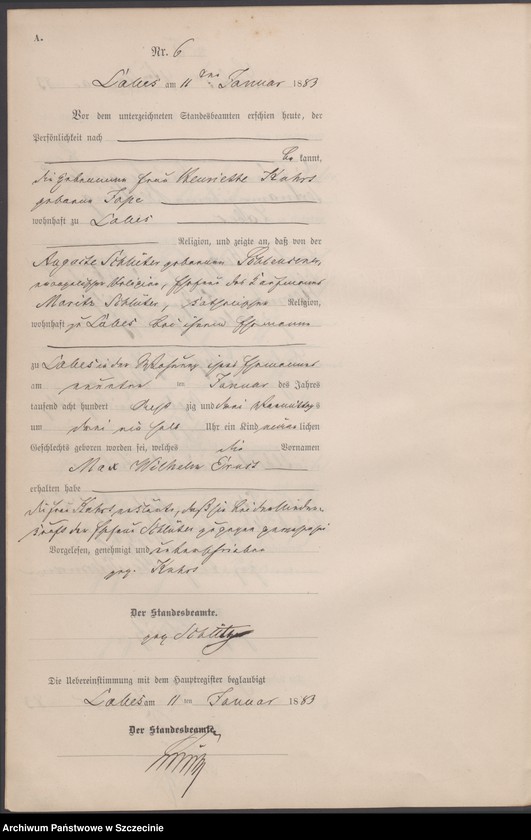 A.
Nr. 6
Labes am 11 ten Januar 1883
Vor dem unterzeichneten Standesbeamten erschien heute, der
Persönlichkeit nach
be kannt,
die Hebamme Frau Henriette Kahrs
geborene Pape
wohnhaft zu Labes
Religion, und zeigte an, daß von der
Auguste Schlüter geborenen
evangelischer Religion, Ehefrau des Kaufmanns
Moritz Schlüter, katholischer Religion,
wohnhaft zu Labes bei ihrem Ehemanne
zu Labes in der Wohnung ihres Ehemannes
am neunten ten Januar des Jahres
tausend acht hundert acht zig und drei Vormittags
um drei ein halb Uhr ein Kind männ lichen
Geschlechts geboren worden sei, welches die Vornamen
Max Wilhelm Ernst
erhalten habe
die Frau Kahrs erklärte, daß sie bei der Nieder-
kunft der Ehefrau Schlüter zugegen gewesen sei
Vorgelesen, genehmigt und unterschrieben
gez. Kahrs
Der Standesbeamte.
gez.
Die Uebereinstimmung mit dem Hauptregister beglaubigt
Labes am 11 ten Januar 1883
Der Standesbeamte.
Archiwum Państwowe w Szczecinie